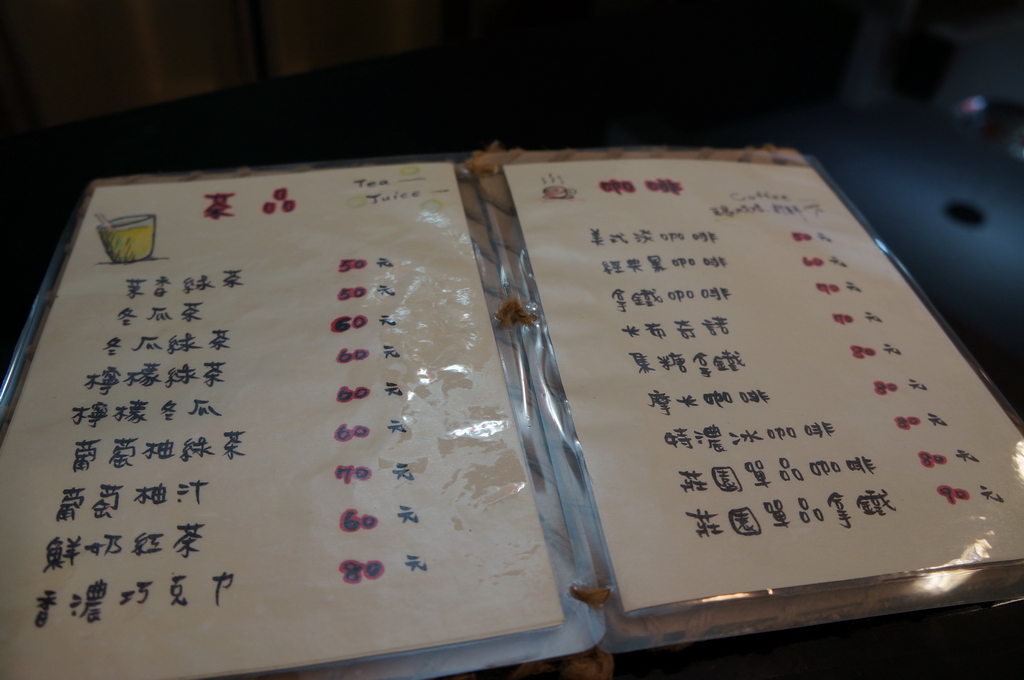 茶品
Tea
Juice
茉香綠茶 50元
冬瓜茶 50元
冬瓜綠茶 60元
檸檬綠茶 60元
檸檬冬瓜 60元
葡萄柚綠茶 60元
葡萄柚汁 70元
鮮奶紅茶 60元
香濃巧克力 80元
咖啡
Coffee
美式淡咖啡 50元
經典黑咖啡 60元
拿鐵咖啡 70元
卡布奇諾 70元
果糖拿鐵 80元
摩卡咖啡 80元
特濃冰咖啡 80元
莊園單品咖啡 80元
莊園單品拿鐵 90元